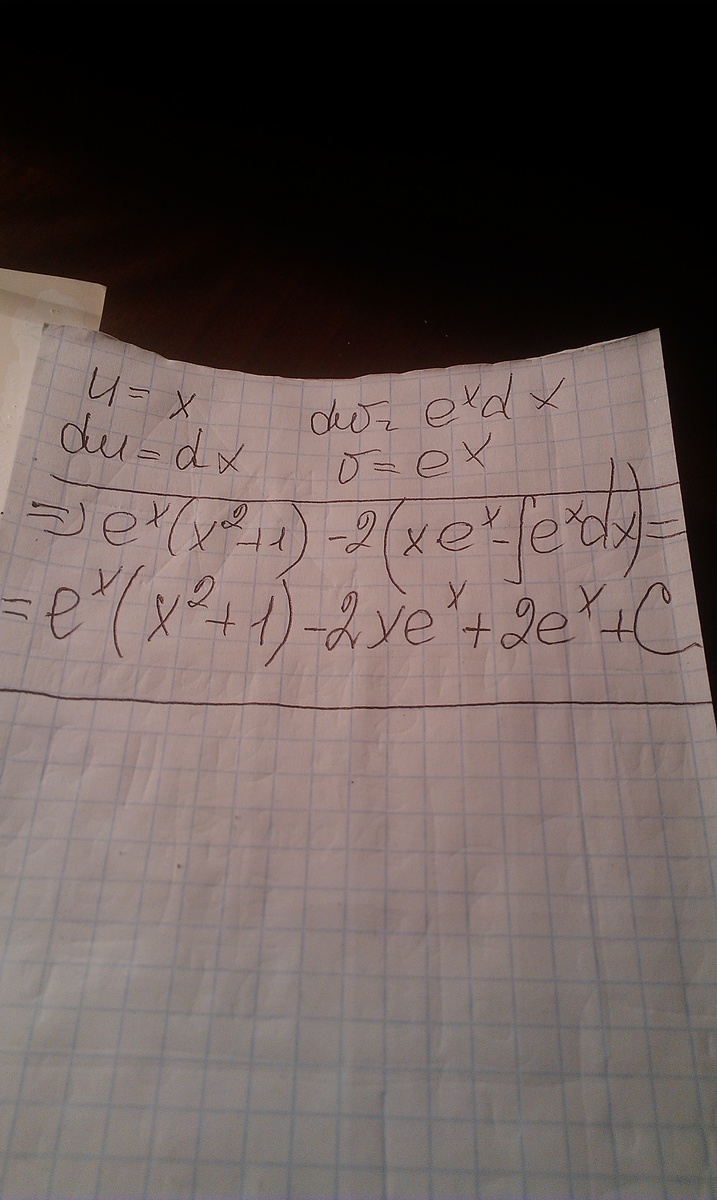 u = x dv = eˣd x
du = dx v = eˣ
=> eˣ(x²+1) -2(xeˣ-∫eˣdx)=
= eˣ(x²+1)-2xeˣ+2eˣ+C